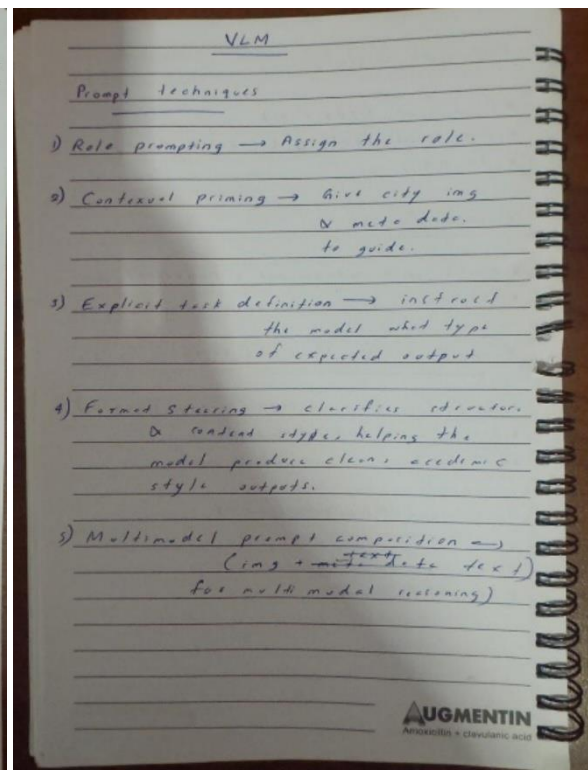 VLM
Prompt techniques
1) Role prompting → Assign the role.
2) Contexual priming → Give city img
& meta data.
to guide.
3) Explicit task definition → instruct
the model what type
of expected output
4) Format steering → clarifies structure
& content style, helping the
model produce clean, academic
style outputs.
5) Multimodel prompt composition →
text
(img + meta data text)
for multi modal reasoning)
AUGMENTIN
Amoxicillin + clavulanic acid